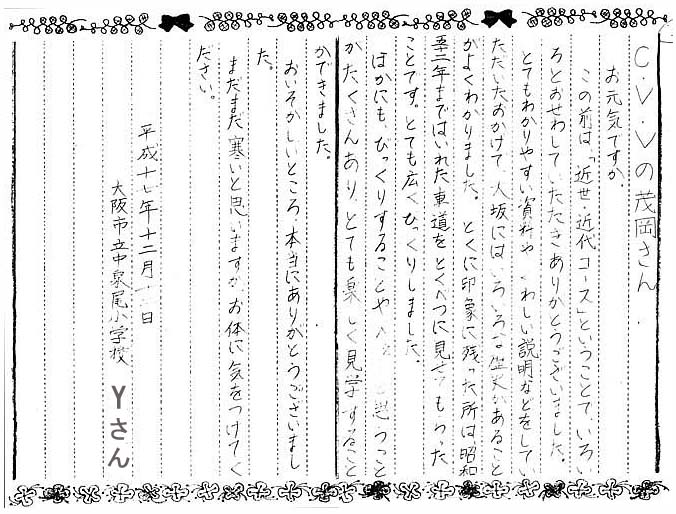 C.V.Vの茂岡さん
お元気ですか。
この前は「近世・近代コース」ということで、いろい
ろとおせわしていただきありがとうございました。
とてもわかりやすい資料や わしい説明などをしてい
ただいたおかげで 大坂にはいろいろな歴史があること
がよくわかりました。とくに印象に残った所は、昭和
五十二年まではいれた車道をとくべつに見せてもらった
ことです。とても広くびっくりしました。
ほかにも、びっくりすることや う うこと
がたくさんあり、とても楽しく見学すること
ができました。
おいそがしいところ、本当にありがとうございまし
た。
まだまだ寒いと思いますが、お体に気をつけてく
ださい。
平成十 年十二月 日
大阪市立中泉尾小学校 Yさん